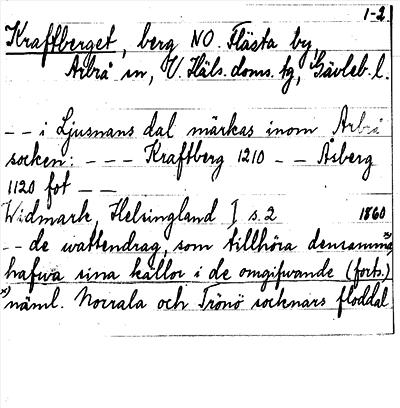 1-2.
Kraftberget, berg NO. Flästa by,
Arbrå sn, V. Häls. doms. tg, Gävleb. l.
-- i Ljusnans dal märkas inom Arbrå
socken: --- Kraftberg 1210 -- Åsberg
1120 fot --
Widmark, Helsingland I s. 2 1860
-- de wattendrag, som tillhöra densamma, x)
hafwa sina källor i de omgifwande (forts.)
x) näml. Norrala och Trönö socknars floddal